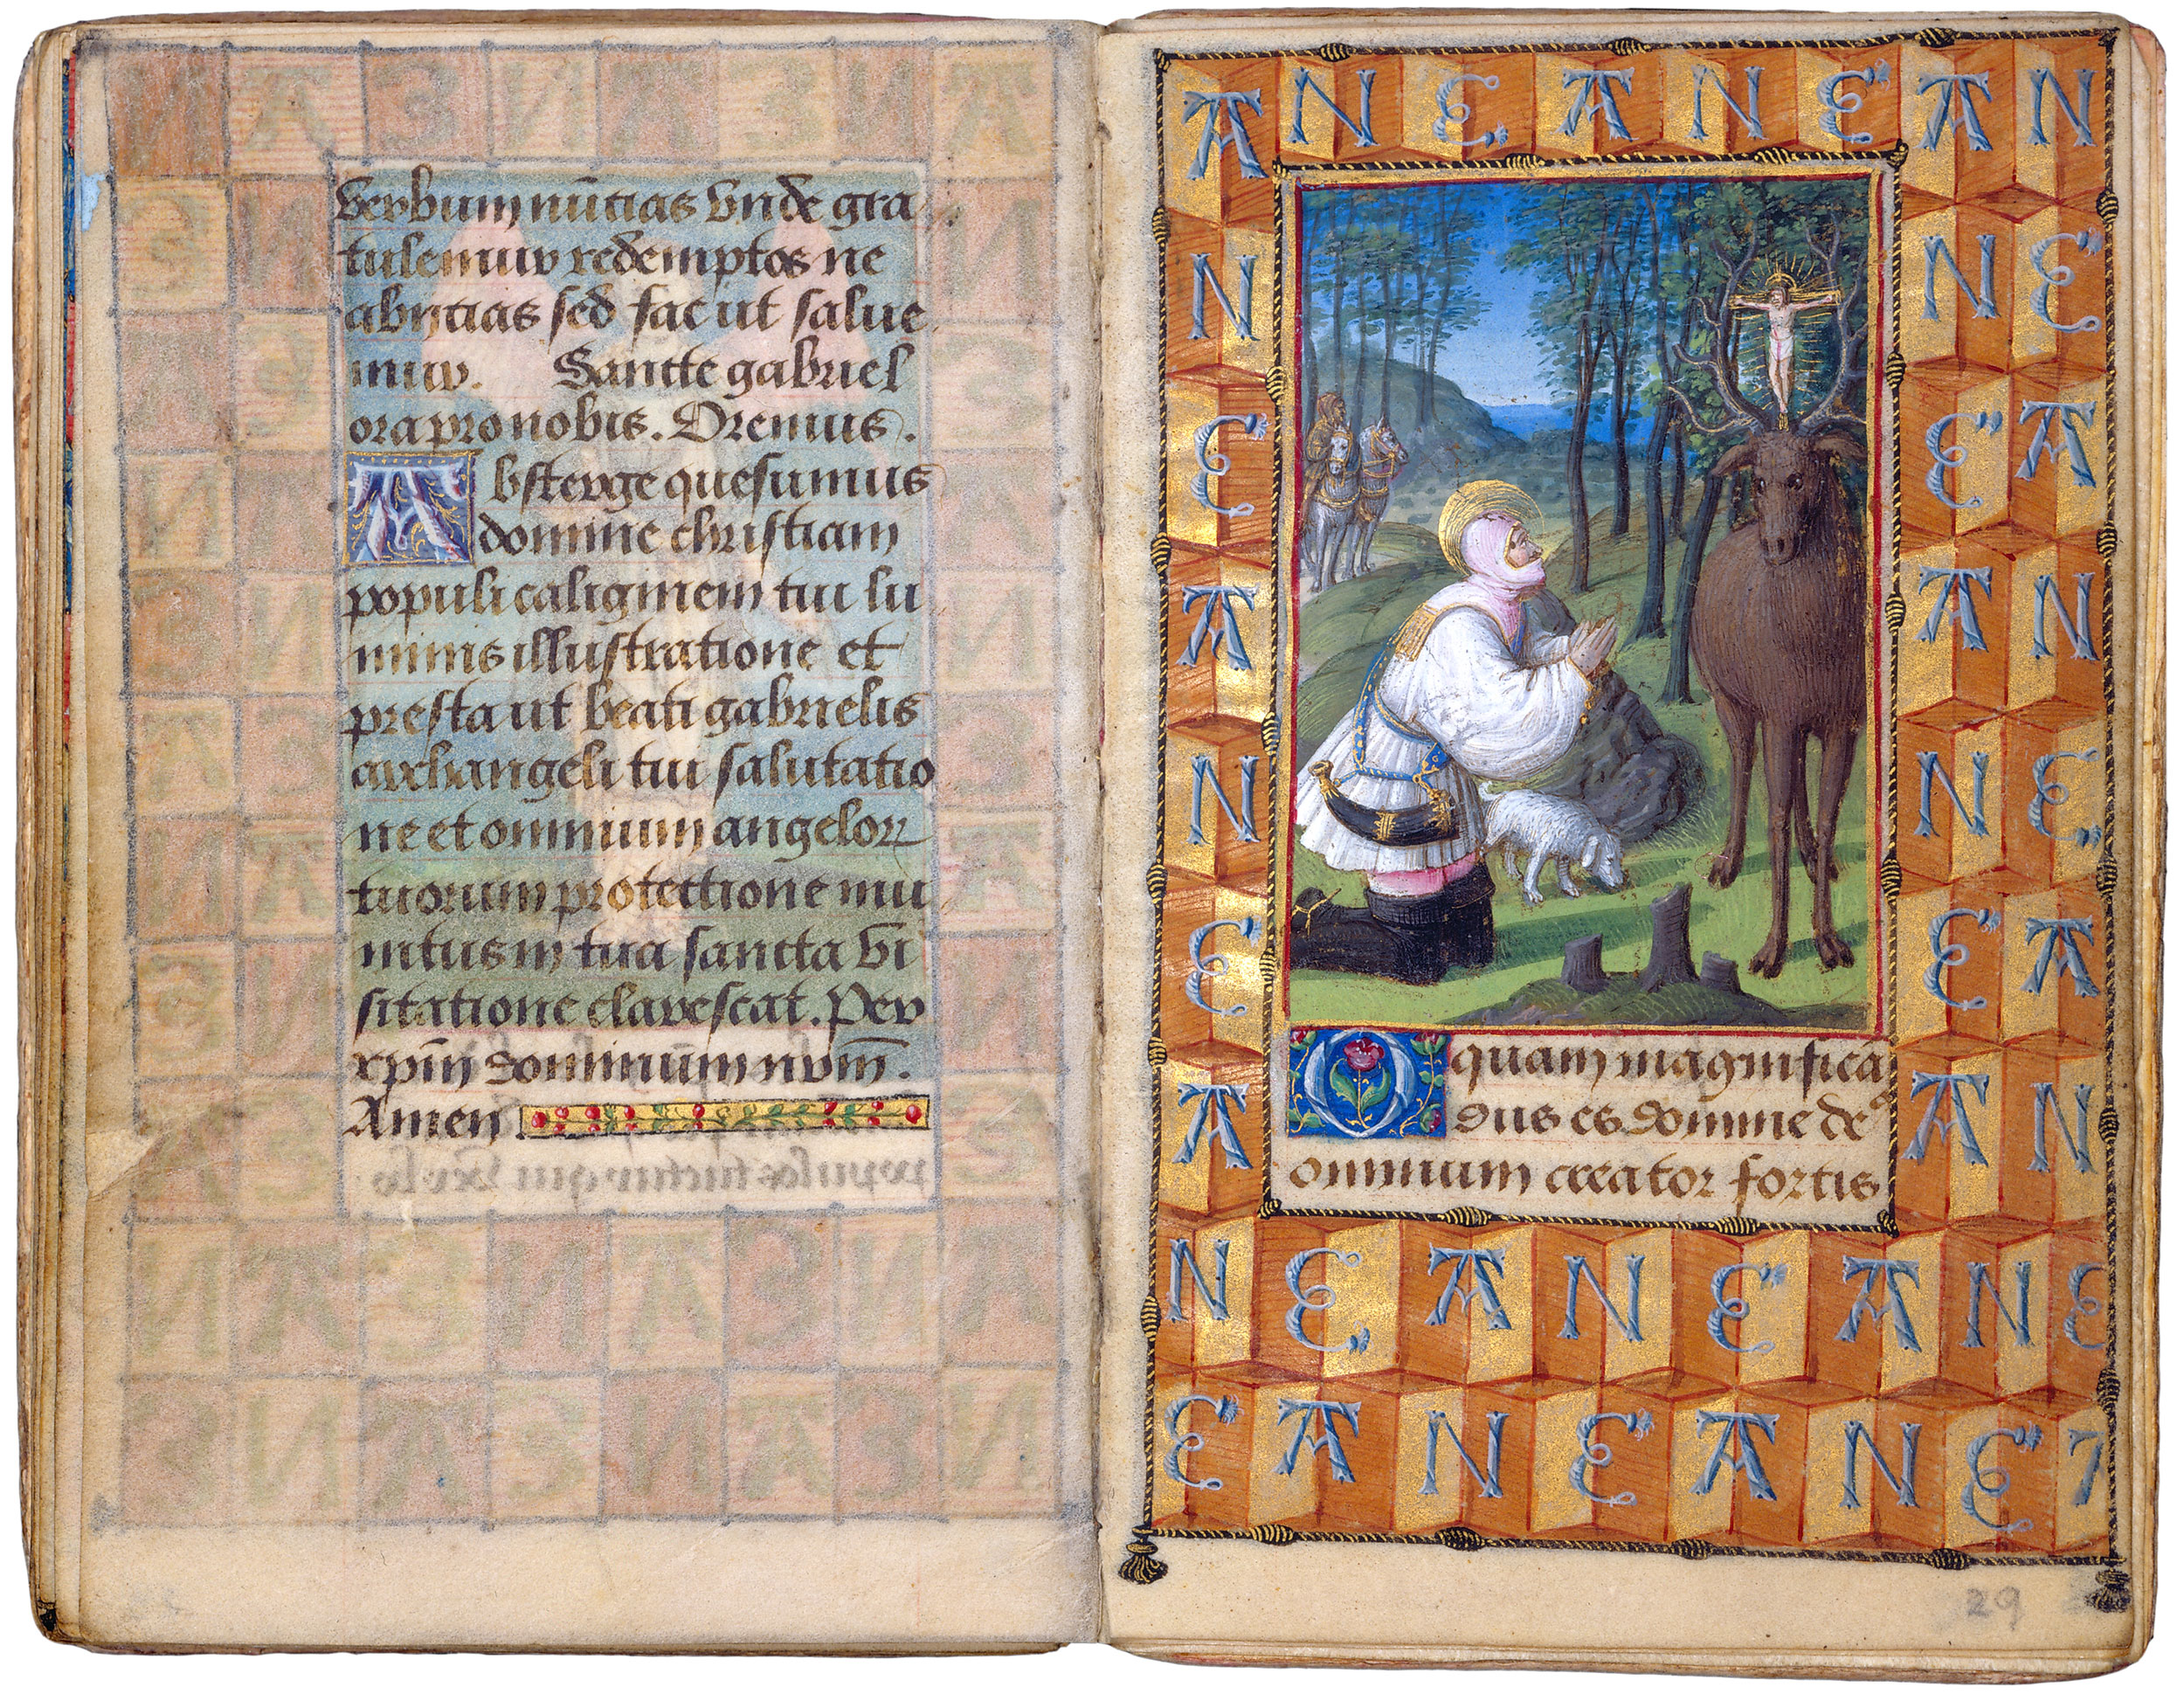 verbum nūtias vnde gra
tulemur redemptos ne
abijcias sed fac ut salue
mur. Sancte gabriel
ora pro nobis. Oremus.
Absterge quesumus
domine christiani
populi caliginem tui lu
minis illustratione et
presta ut beati gabrielis
archangeli tui salutatio
ne et omnium angeloꝝ
tuorum protectione mu
nitus in tua sancta vi
sitatione clarescat. Per
xpm̄ dominum nrm̄.
Amen.
A N E A N E A N
N N E
E E A
A A N
N N E
E E A
A A N
O quam magnificā
dus es domine deꝰ
omnium creator fortis
N E A N E A N E
E A N E A N E
29